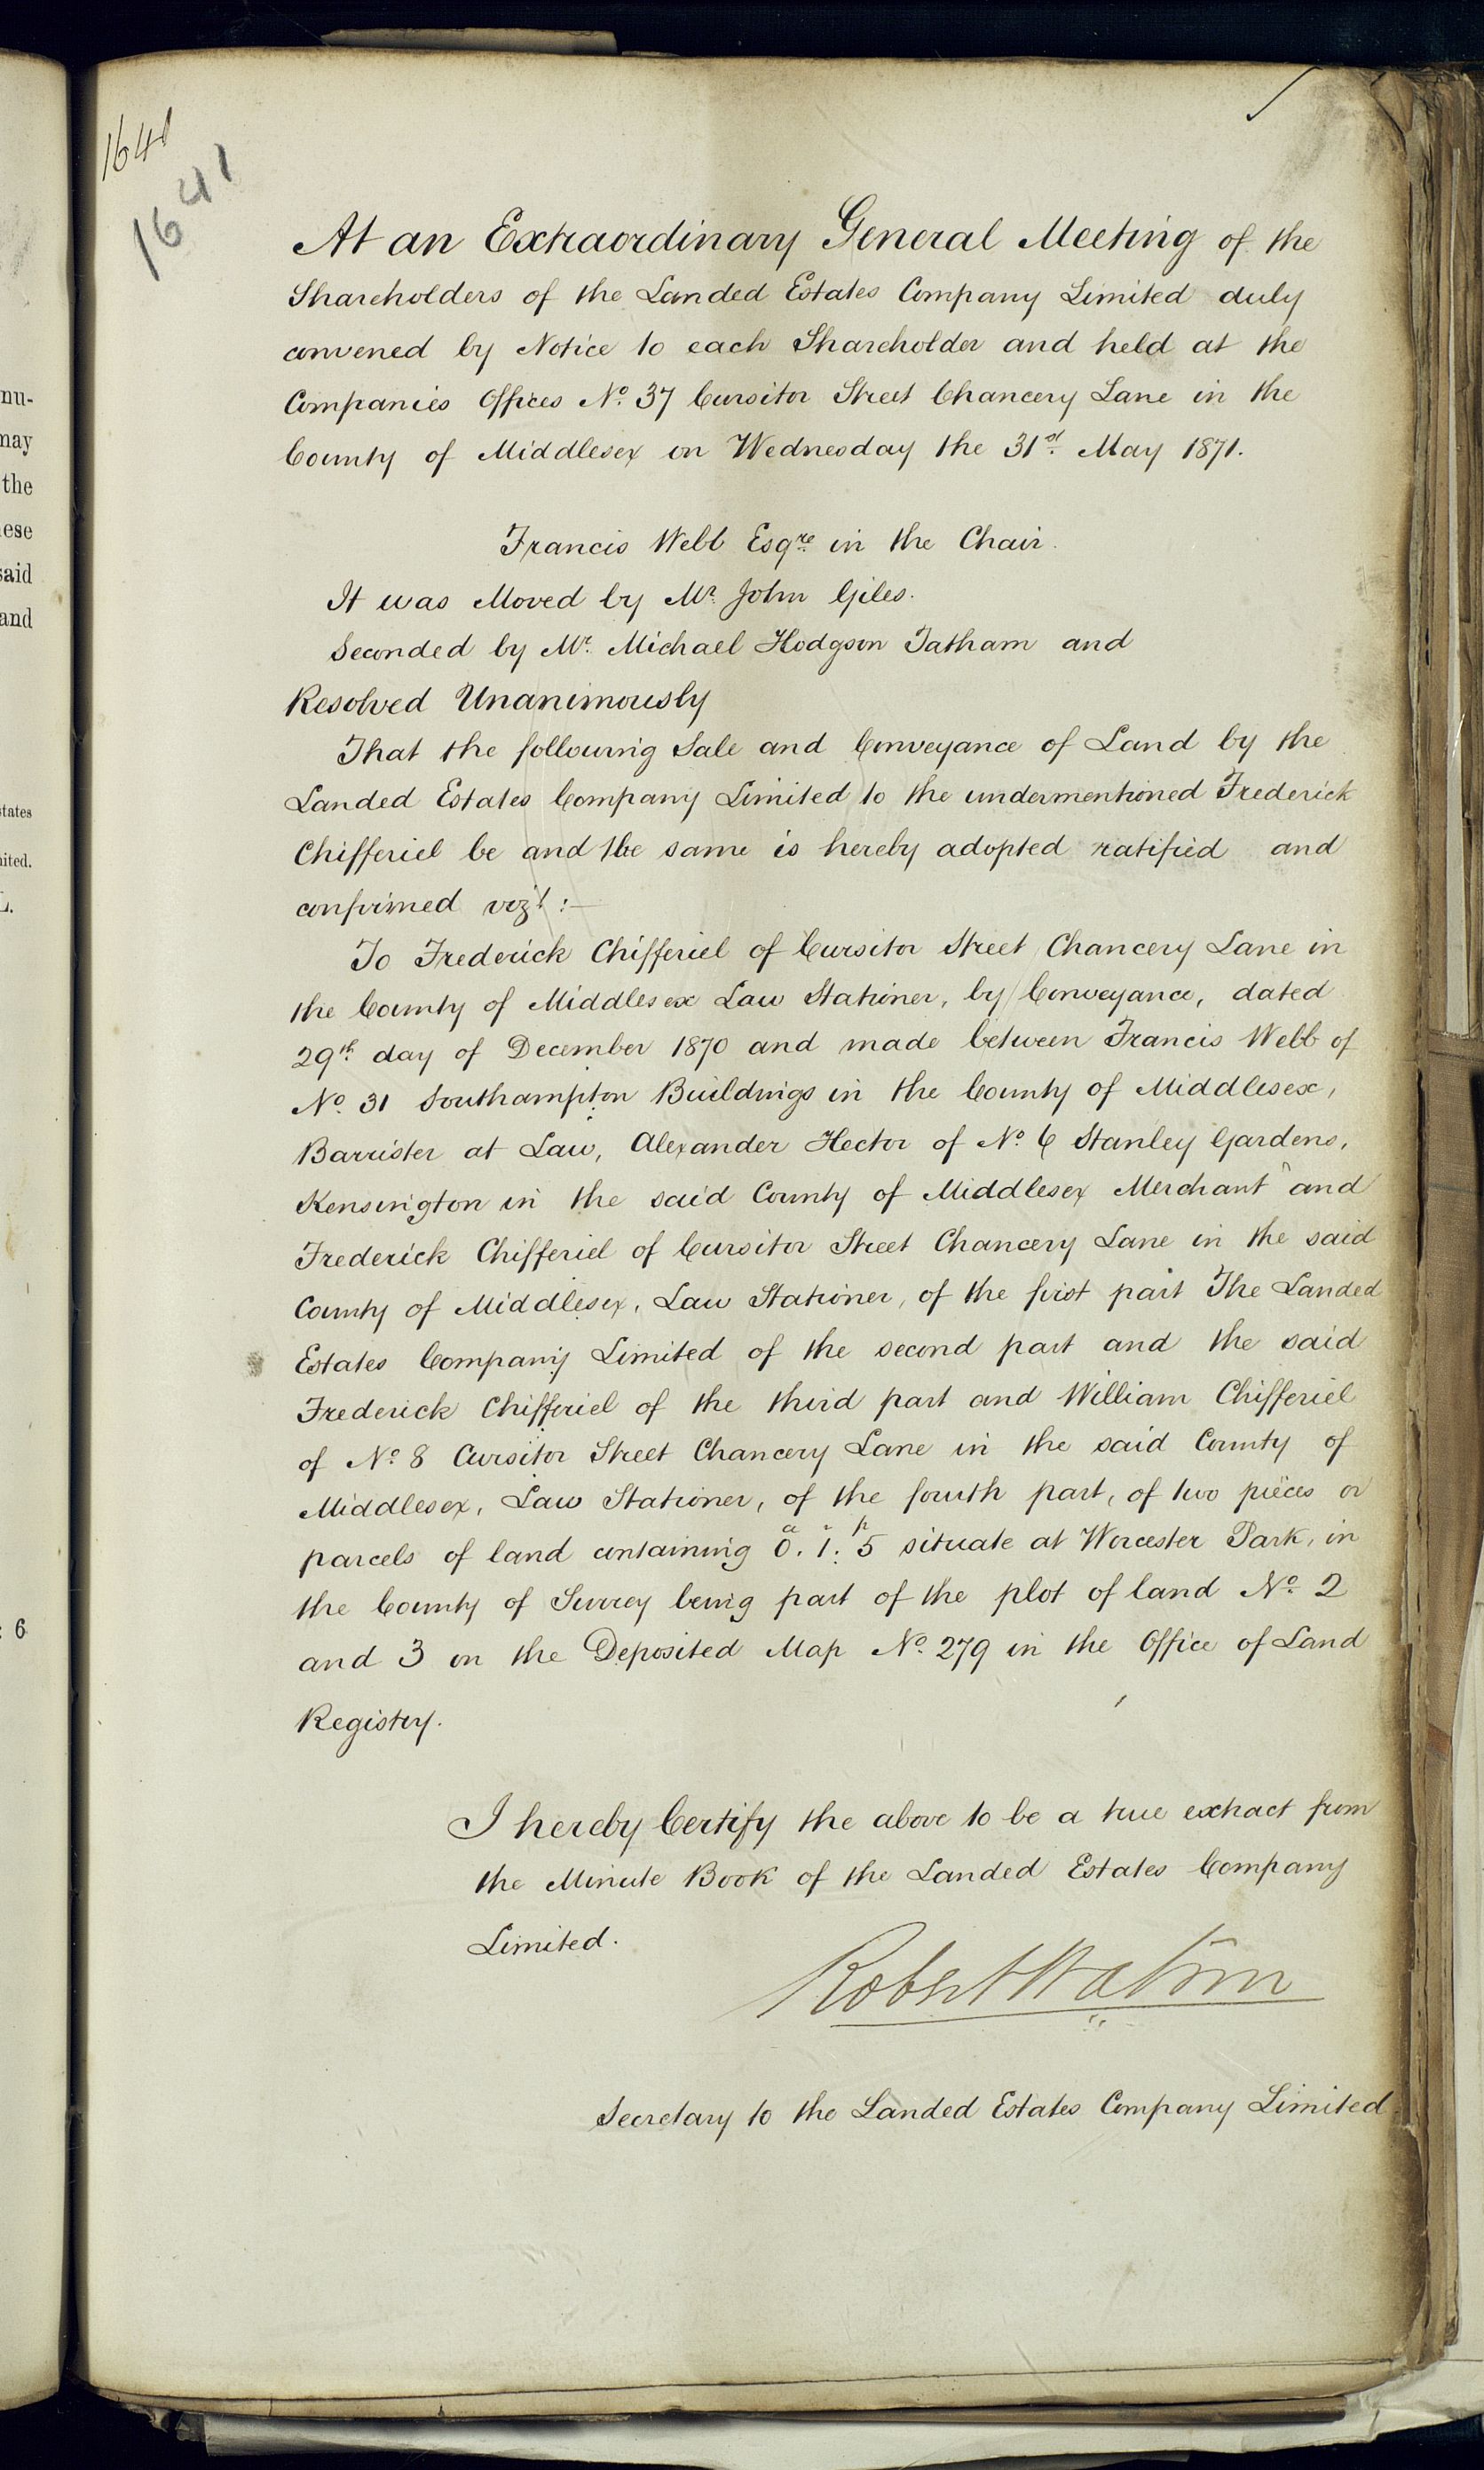 1641
1641
At an Extraordinary General Meeting of the
Shareholders of the Landed Estates Company Limited duly
convened by Notice to each Shareholder and held at the
Companies Offices No. 37 Cursitor Street Chancery Lane in the
County of Middlesex on Wednesday the 31st. May 1871.
Francis Webb Esqre. in the Chair.
It was Moved by Mr. John Giles.
Seconded by Mr. Michael Hodgson Tatham and
Resolved Unanimously
That the following Sale and Conveyance of Land by the
Landed Estates Company Limited to the undermentioned Frederick
Chifferiel be and the same is hereby adopted ratified and
confirmed vizt:—
To Frederick Chifferiel of Cursitor Street Chancery Lane in
the County of Middlesex Law Stationer, by Conveyance, dated
29th. day of December 1870 and made between Francis Webb of
No. 31 Southampton Buildings in the County of Middlesex,
Barrister at Law, Alexander Hector of No. 6 Stanley Gardens,
Kensington in the said County of Middlesex Merchant and
Frederick Chifferiel of Cursitor Street Chancery Lane in the said
County of Middlesex, Law Stationer, of the first part The Landed
Estates Company Limited of the second part and the said
Frederick Chifferiel of the third part and William Chifferiel
of No. 8 Cursitor Street Chancery Lane in the said County of
Middlesex, Law Stationer, of the fourth part, of two pieces or
parcels of land containing 0a. 1r. 5p situate at Worcester Park, in
the County of Surrey being part of the plot of land No. 2
and 3 on the Deposited Map No. 279 in the Office of Land
Registry.
I hereby Certify the above to be a true extract from
the Minute Book of the Landed Estates Company
Limited.
Robert Watson
Secretary to the Landed Estates Company Limited.
nu-
may
the
ese
said
and
states
ited.
L.
: 6